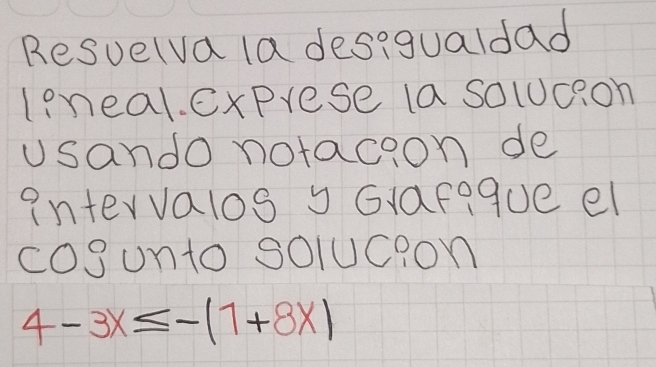 Resuelva la desigualdad
lineal. Exprese la solucion
usando notacion de
intervalos y Grafique el
cojunto solucion
4-3x≤-(1+8x)